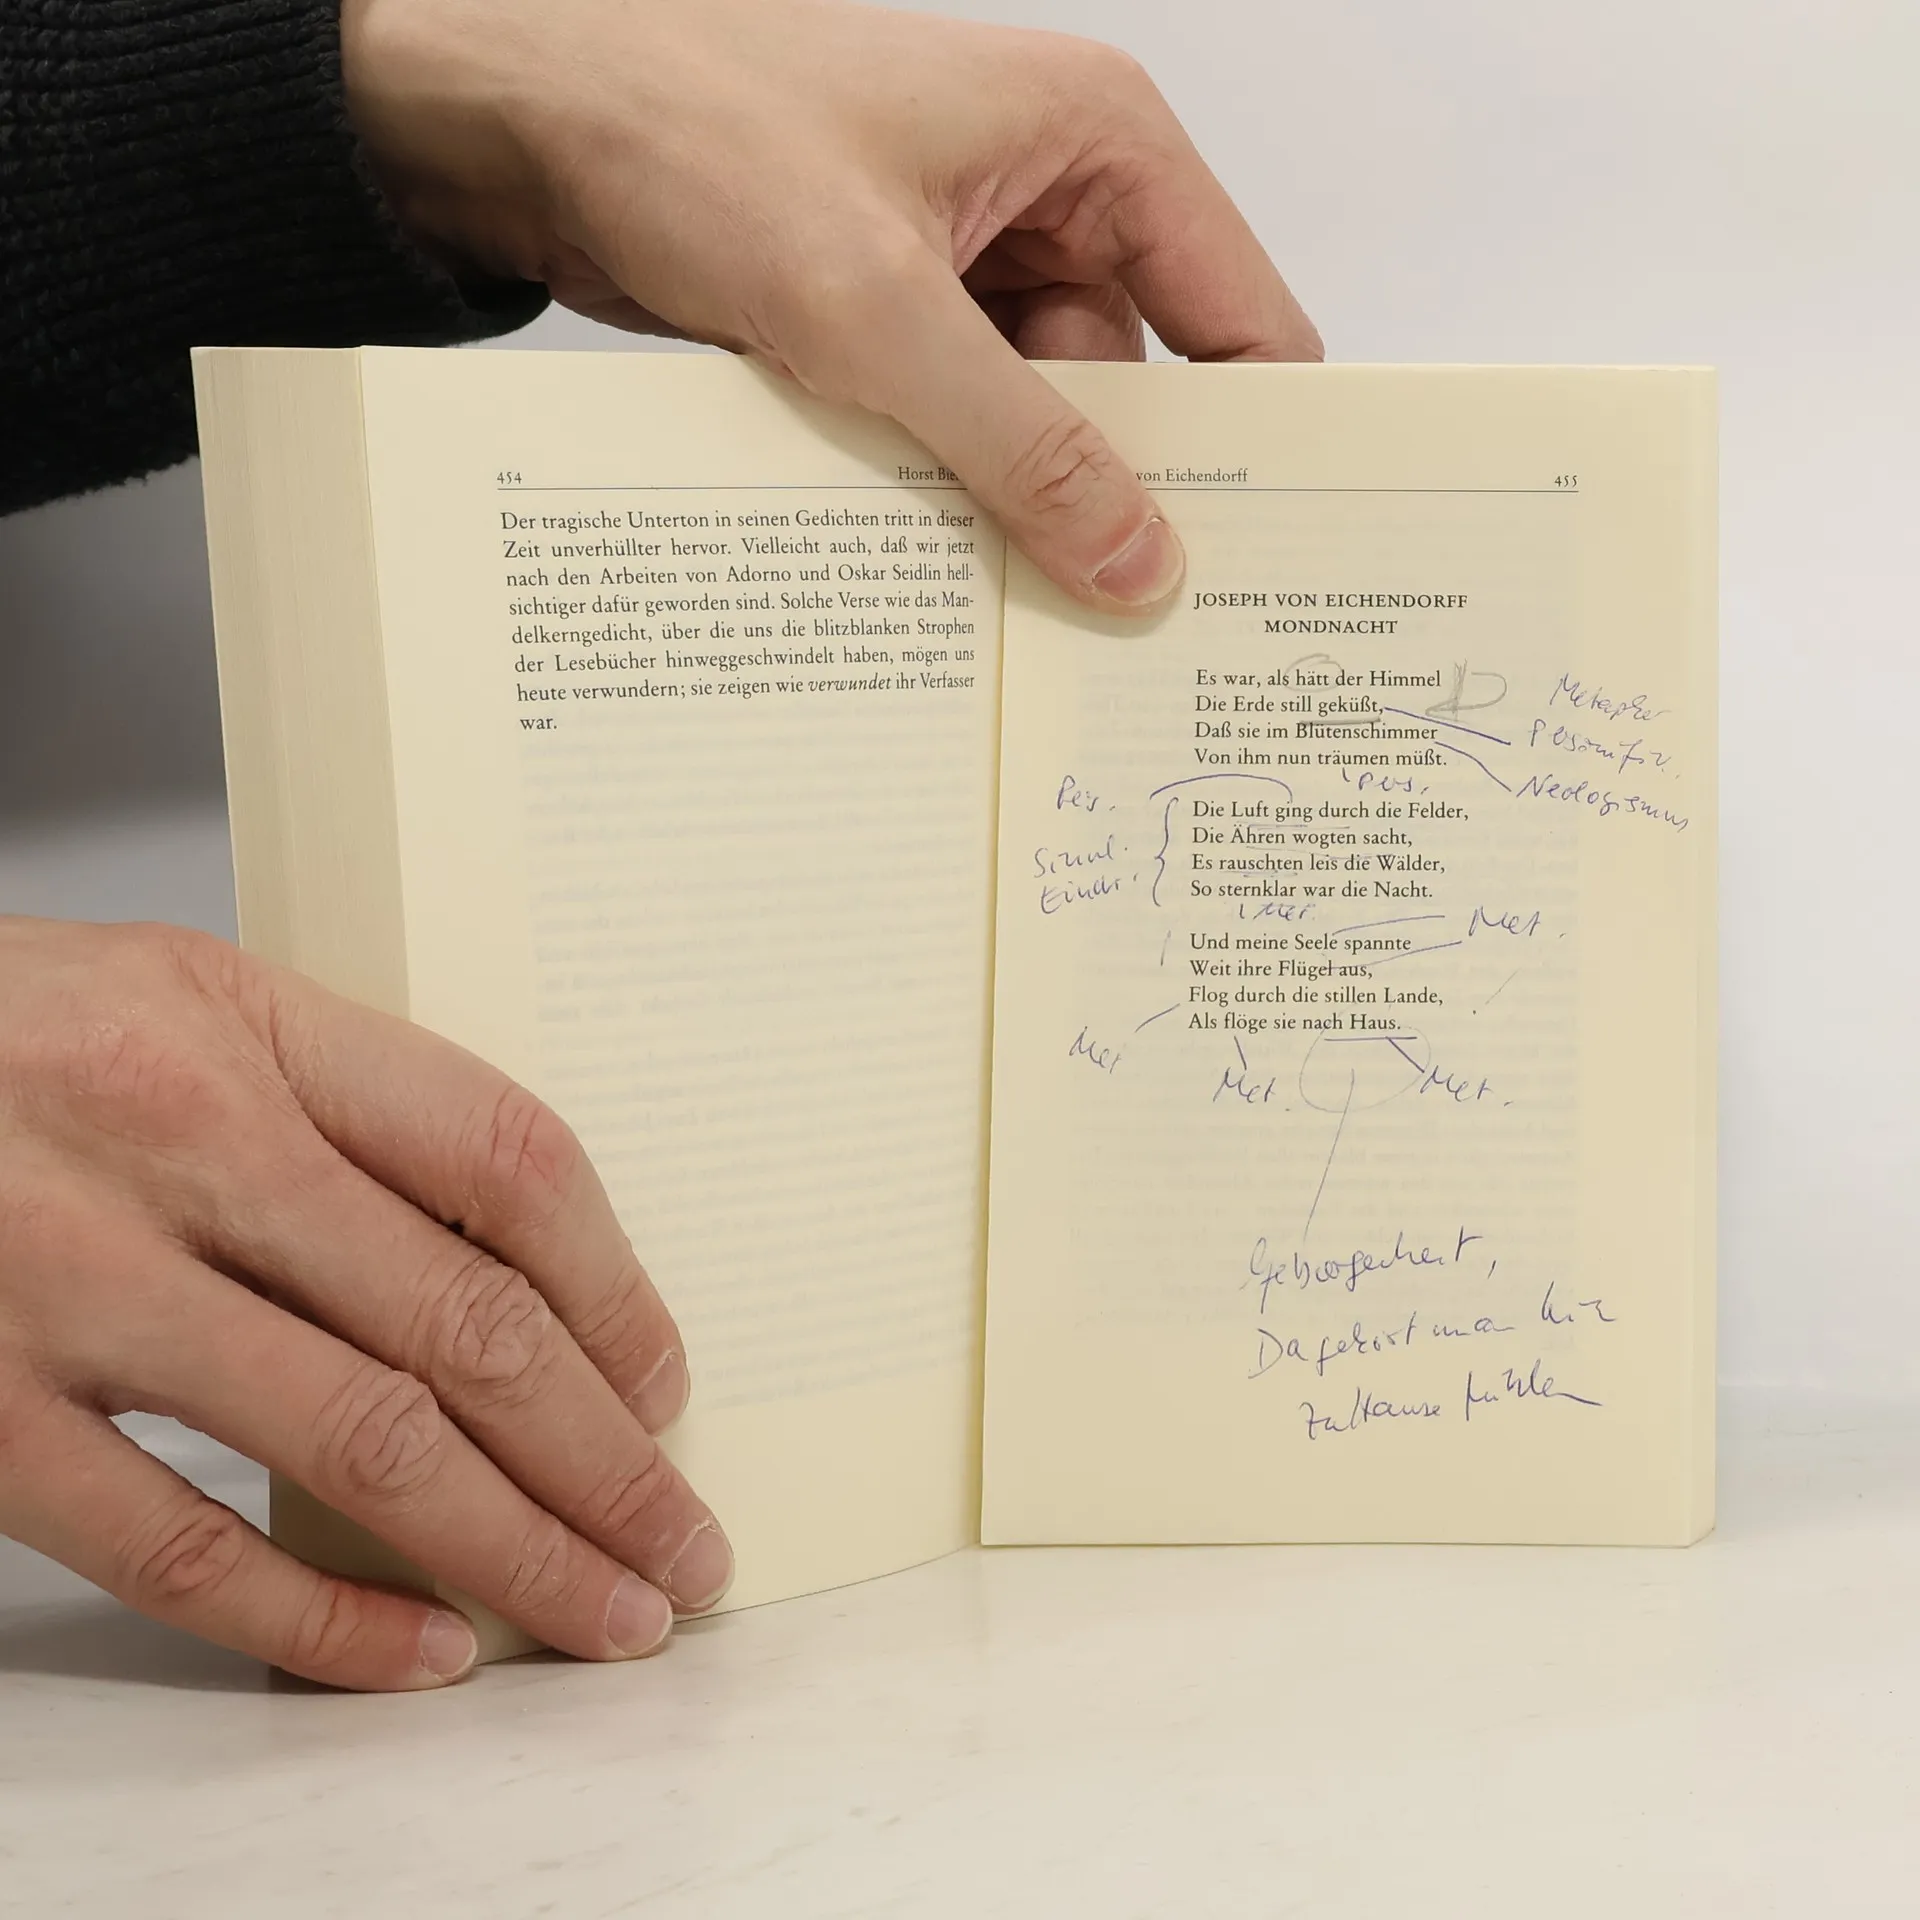 454
Horst Bie
Der tragische Unterton in seinen Gedichten tritt in dieser
Zeit unverhüllter hervor. Vielleicht auch, daß wir jetzt
nach den Arbeiten von Adorno und Oskar Seidlin hell-
sichtiger dafür geworden sind. Solche Verse wie das Man-
delkerngedicht, über die uns die blitzblanken Strophen
der Lesebücher hinweggeschwindelt haben, mögen uns
heute verwundern; sie zeigen wie verwundet ihr Verfasser
war.
von Eichendorff
455
JOSEPH VON EICHENDORFF
MONDNACHT
Es war, als hätt der Himmel
Die Erde still geküßt,
Daß sie im Blütenschimmer
Von ihm nun träumen müßt.
Metapher
Personifiz.
Neologismus
Pers.
Pers.
Die Luft ging durch die Felder,
Die Ähren wogten sacht,
Es rauschten leis die Wälder,
So sternklar war die Nacht.
Sinnl.
Eindr.
Met.
Met.
Und meine Seele spannte
Weit ihre Flügel aus,
Flog durch die stillen Lande,
Als flöge sie nach Haus.
Met
Met.
Met.
Geborgenheit,
Da gehört man hin
zu Hause fühlen